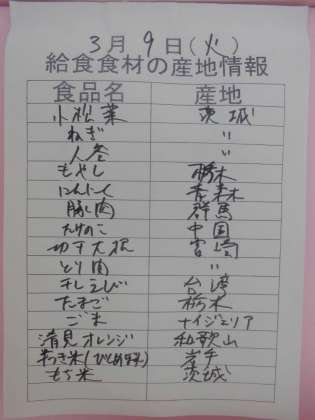 3月9日(火)
給食食材の産地情報
食品名 産地
小松菜 茨城
ねぎ 〃
人参 〃
もやし 栃木
にんにく 青森
豚肉 群馬
たけのこ 中国
切干大根 宮崎
とり肉 〃
干しえび 台湾
たまご 栃木
ごま ナイジェリア
清見オレンジ 和歌山
米(ひとめぼれ) 岩手
もち米 茨城